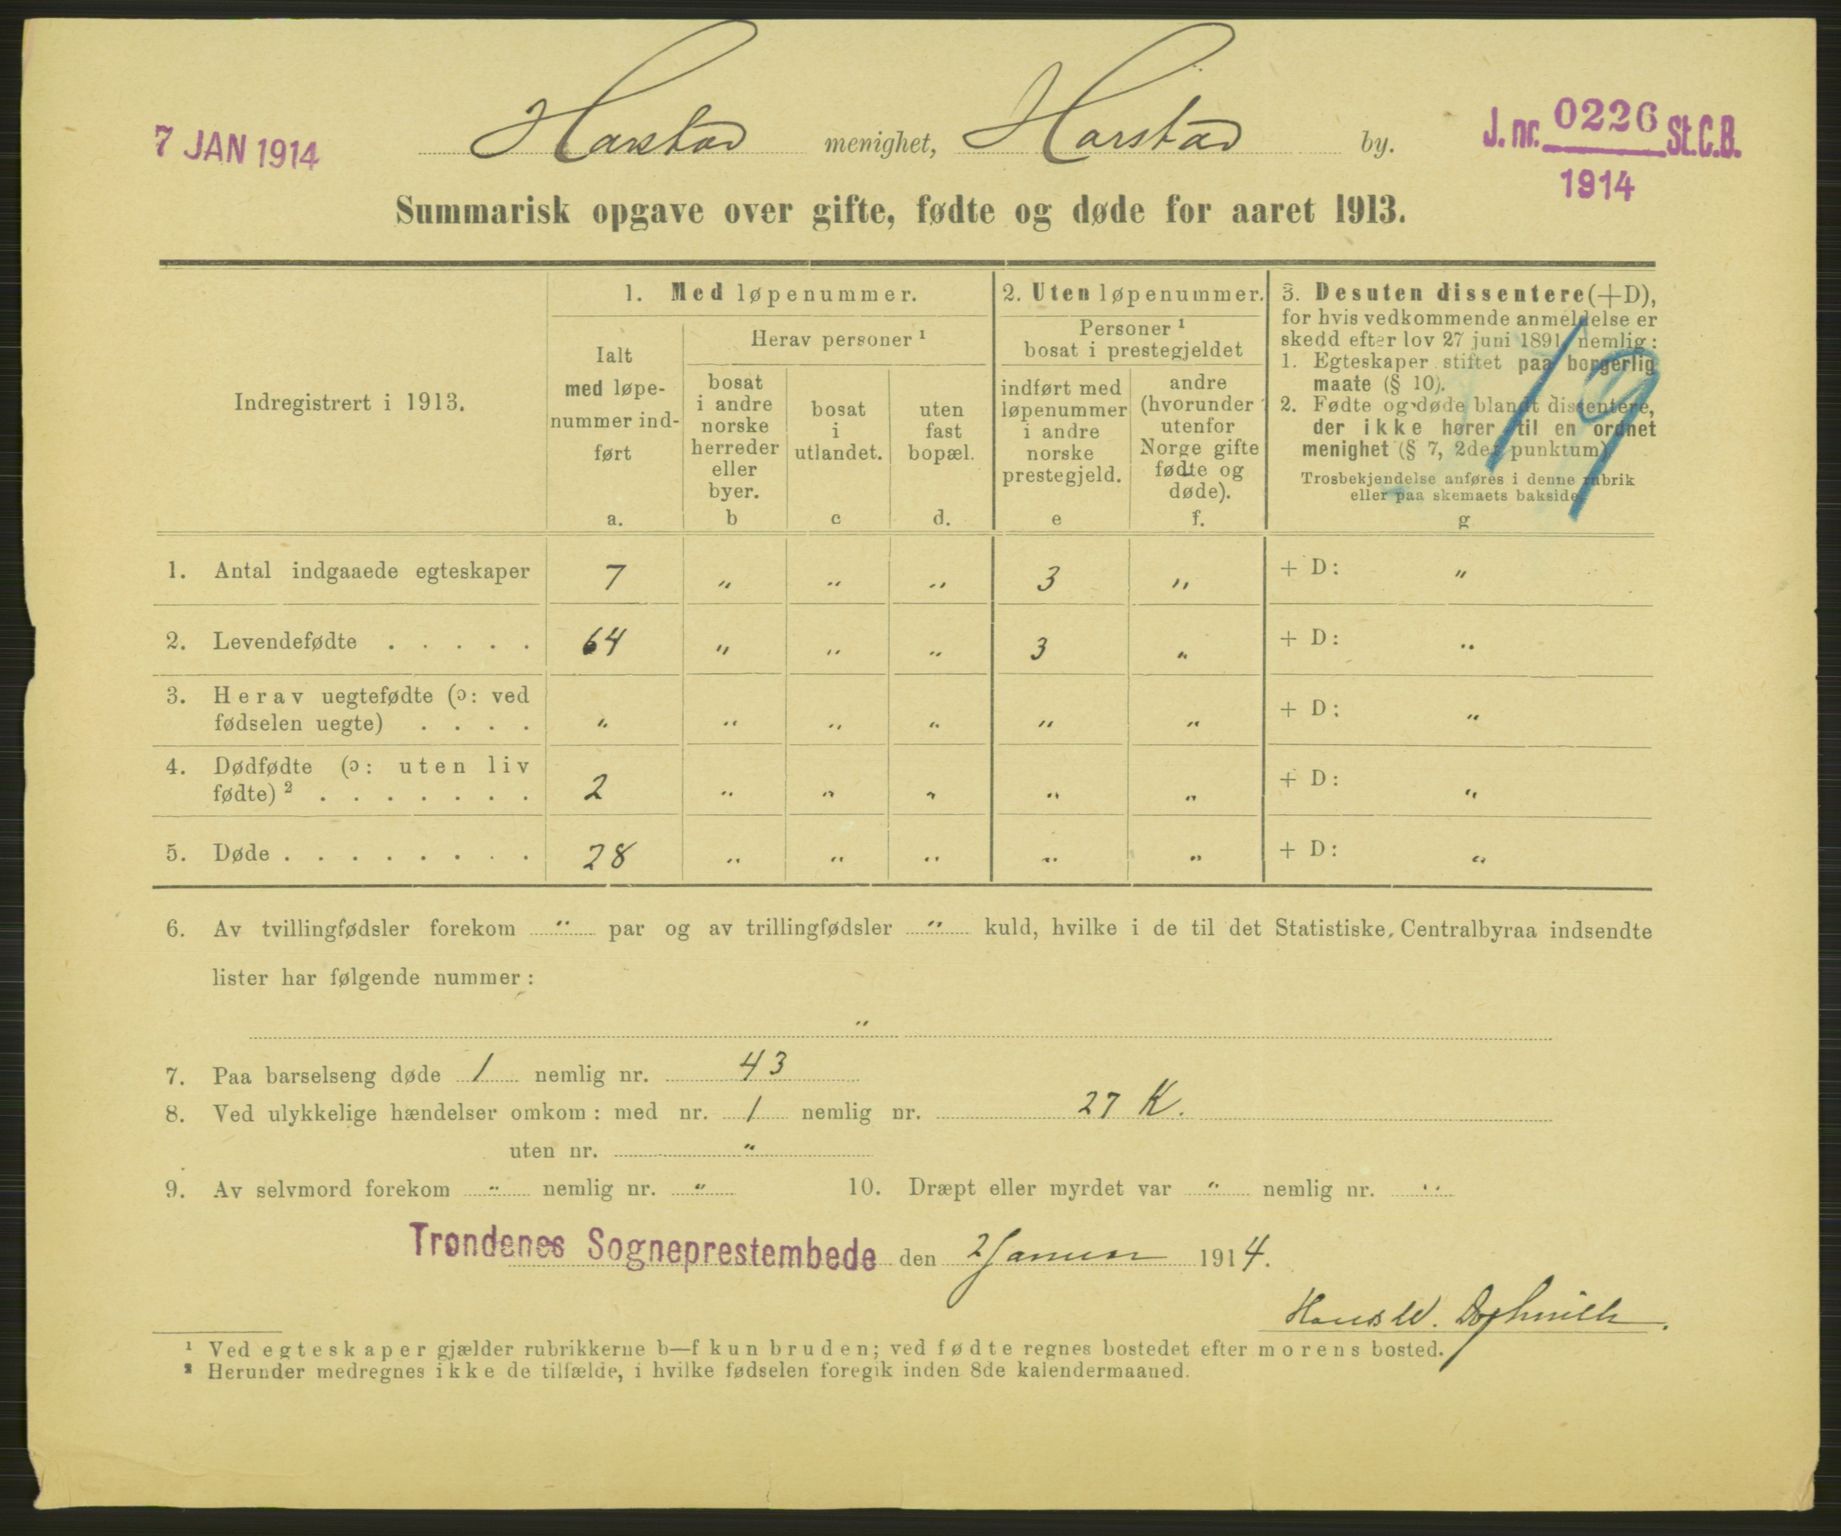 7 JAN 1914
Harstad menighet, Harstad by.
J. nr. 0226 St. C. B.
1914
Summarisk opgave over gifte, fødte og døde for aaret 1913.
Indregistrert i 1913.
1. Med løpenummer.
Ialt
med løpe-
nummer ind-
ført
a.
Herav personer ¹
bosat
i andre
norske
herreder
eller
byer.
b
bosat
i
utlandet.
c
uten
fast
bopæl.
d.
2. Uten løpenummer.
Personer ¹
bosat i prestegjeldet
indført med
løpenummer
i andre
norske
prestegjeld.
e
andre
(hvorunder
utenfor
Norge gifte
fødte og
døde).
f.
3. Desuten dissentere (+D),
for hvis vedkommende anmeldelse er
skedd efter lov 27 juni 1891, nemlig:
1. Egteskaper stiftet paa borgerlig
maate (§ 10).
2. Fødte og døde blandt dissentere,
der ikke hører til en ordnet
menighet (§ 7, 2det punktum)
Trosbekjendelse anføres i denne rubrik
eller paa skemaets bakside.
g
19
1. Antal indgaaede egteskaper 7 " " " 3 " + D: "
2. Levendefødte . . . . . 64 " " " 3 " + D: "
3. Herav uegtefødte (ɔ: ved
fødselen uegte) . . . . " " " " " " + D: "
4. Dødfødte (ɔ: uten liv
fødte) ² . . . . . . . 2 " " " " " + D: "
5. Døde . . . . . . . . 28 " " " " " + D: "
6. Av tvillingfødsler forekom " par og av trillingfødsler " kuld, hvilke i de til det Statistiske Centralbyraa indsendte
lister har følgende nummer:
"
7. Paa barselseng døde 1 nemlig nr. 43
8. Ved ulykkelige hændelser omkom: med nr. 1 nemlig nr. 27 K.
uten nr. "
9. Av selvmord forekom " nemlig nr. " 10. Dræpt eller myrdet var " nemlig nr. "
Trondenes Sogneprestembede den 2 Januar 1914.
¹ Ved egteskaper gjælder rubrikkerne b—f kun bruden; ved fødte regnes bostedet efter morens bosted.
² Herunder medregnes ikke de tilfælde, i hvilke fødselen foregik inden 8de kalendermaaned.